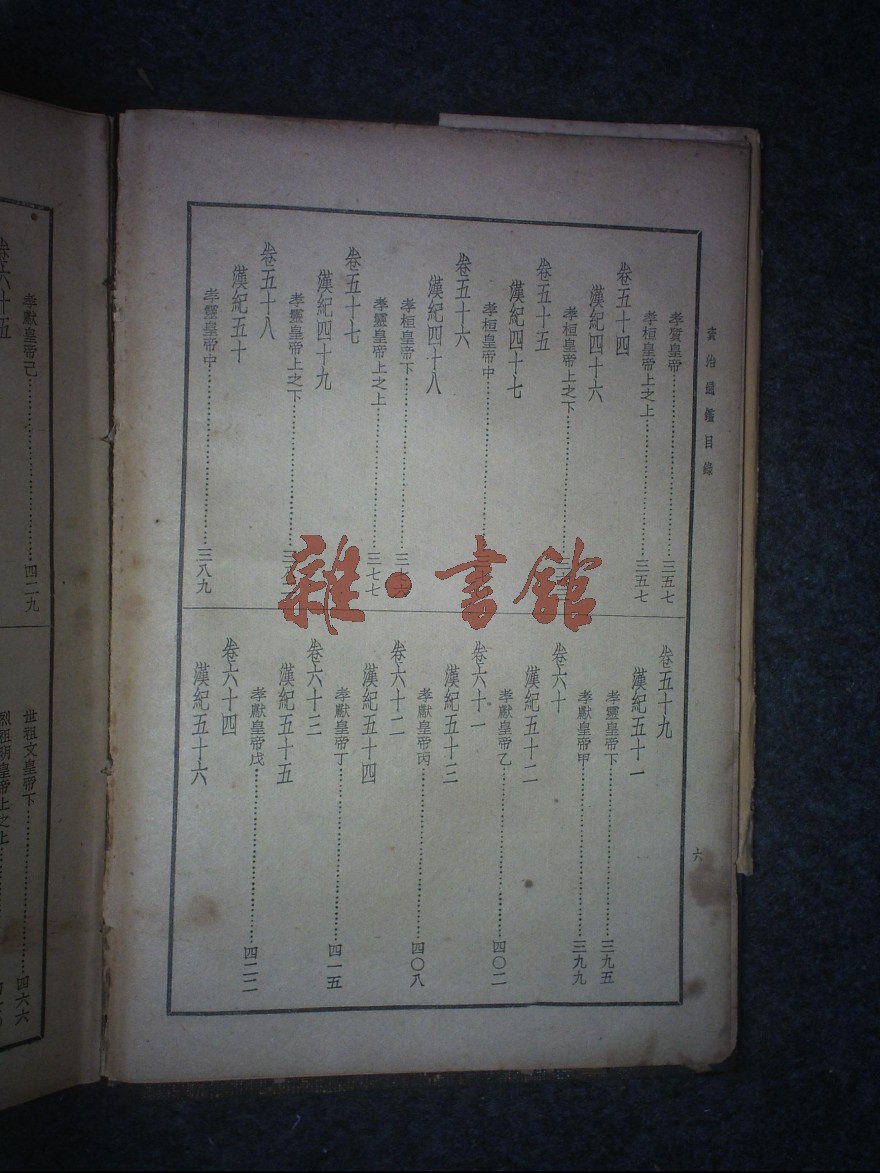 資治通鑑目錄
六
孝質皇帝……三五七
孝桓皇帝上之上……三五七
卷五十四
漢紀四十六
孝桓皇帝上之下……
卷五十五
漢紀四十七
孝桓皇帝中……
卷五十六
漢紀四十八
孝桓皇帝下……
孝靈皇帝上之上……三七七
卷五十七
漢紀四十九
孝靈皇帝上之下……
卷五十八
漢紀五十
孝靈皇帝中……三八九
卷五十九
漢紀五十一
孝靈皇帝下……三九五
孝獻皇帝甲……三九九
卷六十
漢紀五十二
孝獻皇帝乙……四〇二
卷六十一
漢紀五十三
孝獻皇帝丙……四〇八
卷六十二
漢紀五十四
孝獻皇帝丁……四一五
卷六十三
漢紀五十五
孝獻皇帝戊……四二二
卷六十四
漢紀五十六
孝獻皇帝己……四二九
卷六十五
世祖文皇帝下……四六六
烈祖明皇帝上之上……
雜·書館